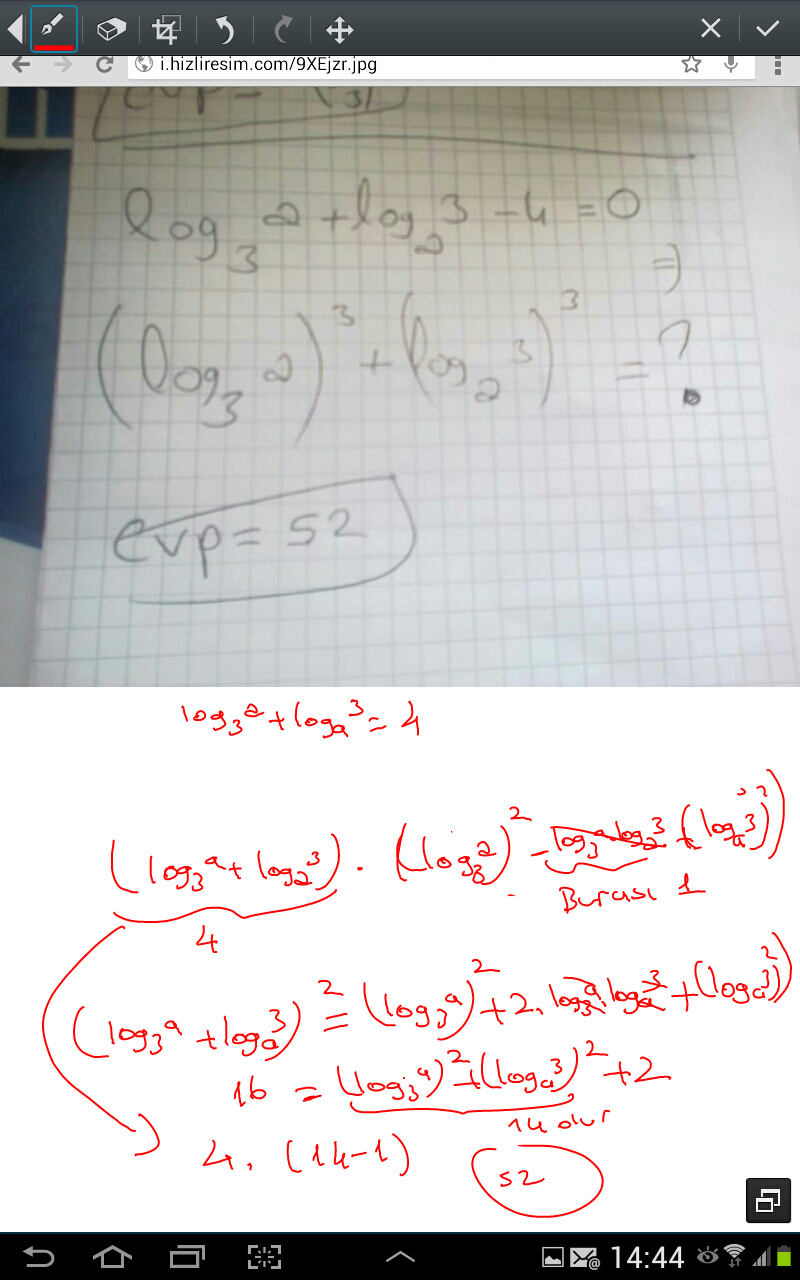 i.hizliresim.com/9XEjzr.jpg
log₃2 + log₂3 - 4 = 0
⇒
(log₃2)³ + (log₂3)³ = ?
cvp = 52
log₃2 + log₂3 = 4
(log₃2 + log₂3) . ((log₃2)² - log₃2 log₂3 + (log₂3)²)
4
Burası 1
(log₃2 + log₂3)² = (log₃2)² + 2. log₃2. log₂3 + (log₂3)²
16 = (log₃2)² + (log₂3)² + 2
14 olur
4. (14-1)
52
14:44